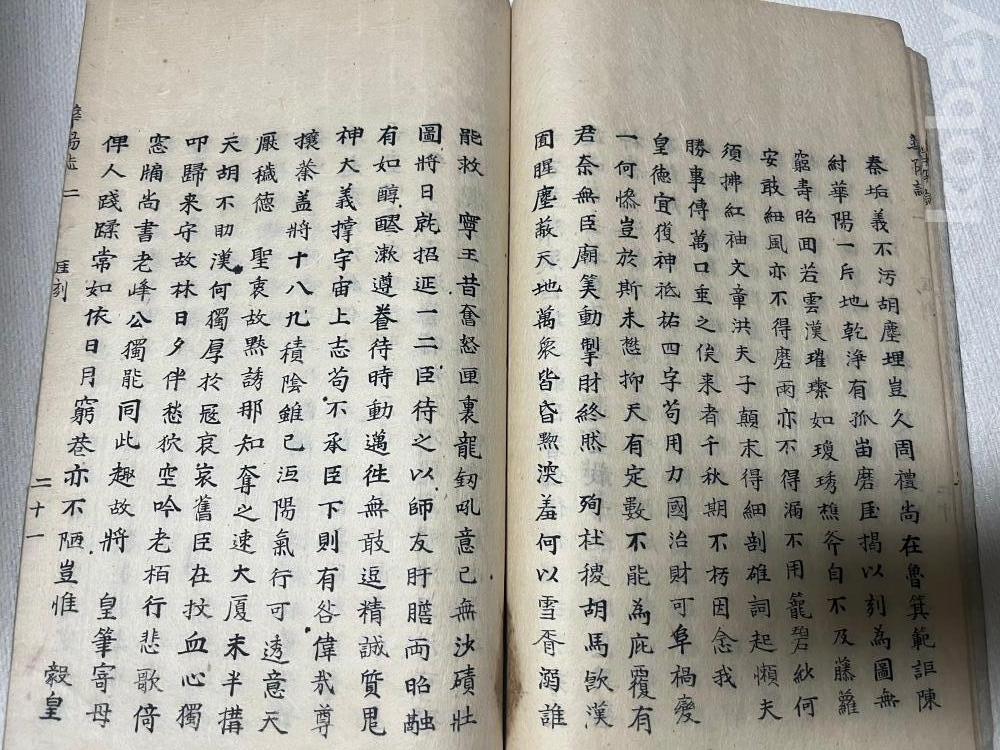 秦垢義不汚胡塵埋豈久周禮尚在魯箕範詎陳
紂華陽一片地乾淨有孤畄磨厓揭以刻為圖無
窮壽昭回若雲漢璀璨如瓊琇樵斧自不及藤蘿
安敢細風亦不得磨雨亦不得漏不用籠碧紗何
須拂紅袖文章洪夫子顛末得細剖雄詞起懶夫
勝事傳萬口垂之俟来者千秋期不朽因念我
皇德宜獲神祗祐四字苟用力國治財可阜禍變
一何慘豈於斯未愸抑天有定數不能為庇覆有
君奈無臣廟筭動掣財終然殉社稷胡馬飲漢
囿腥塵蔽天地萬衆皆昏渙羞何以雪胥溺誰
能救 寧王昔奮怒匣裏龍釼吼意已無沙磧壮
圖將日就招延一二臣待之以師友肝膽両昭融
有如醇醪漱遵養待時動邁徃無敢逗精誠質鬼
神大義撑宇宙上志苟不承臣下則有咎偉哉尊
攘蓁盖將十八九積陰雖已冱陽氣行可透意天
厭穢德 聖衷故黙誘那知奪之速大厦未半搆
天胡不助漢何獨厚於寇哀哀舊臣在抆血心獨
叩歸来守故林日夕伴愁狖空吟老栢行悲歌倚
窓牖尚書老峰公獨能同此趣故將 皇筆寄母
俾人踐蹂常如依日月窮巷亦不陋豈惟 毅皇
華陽誌 二 厓刻 二十一